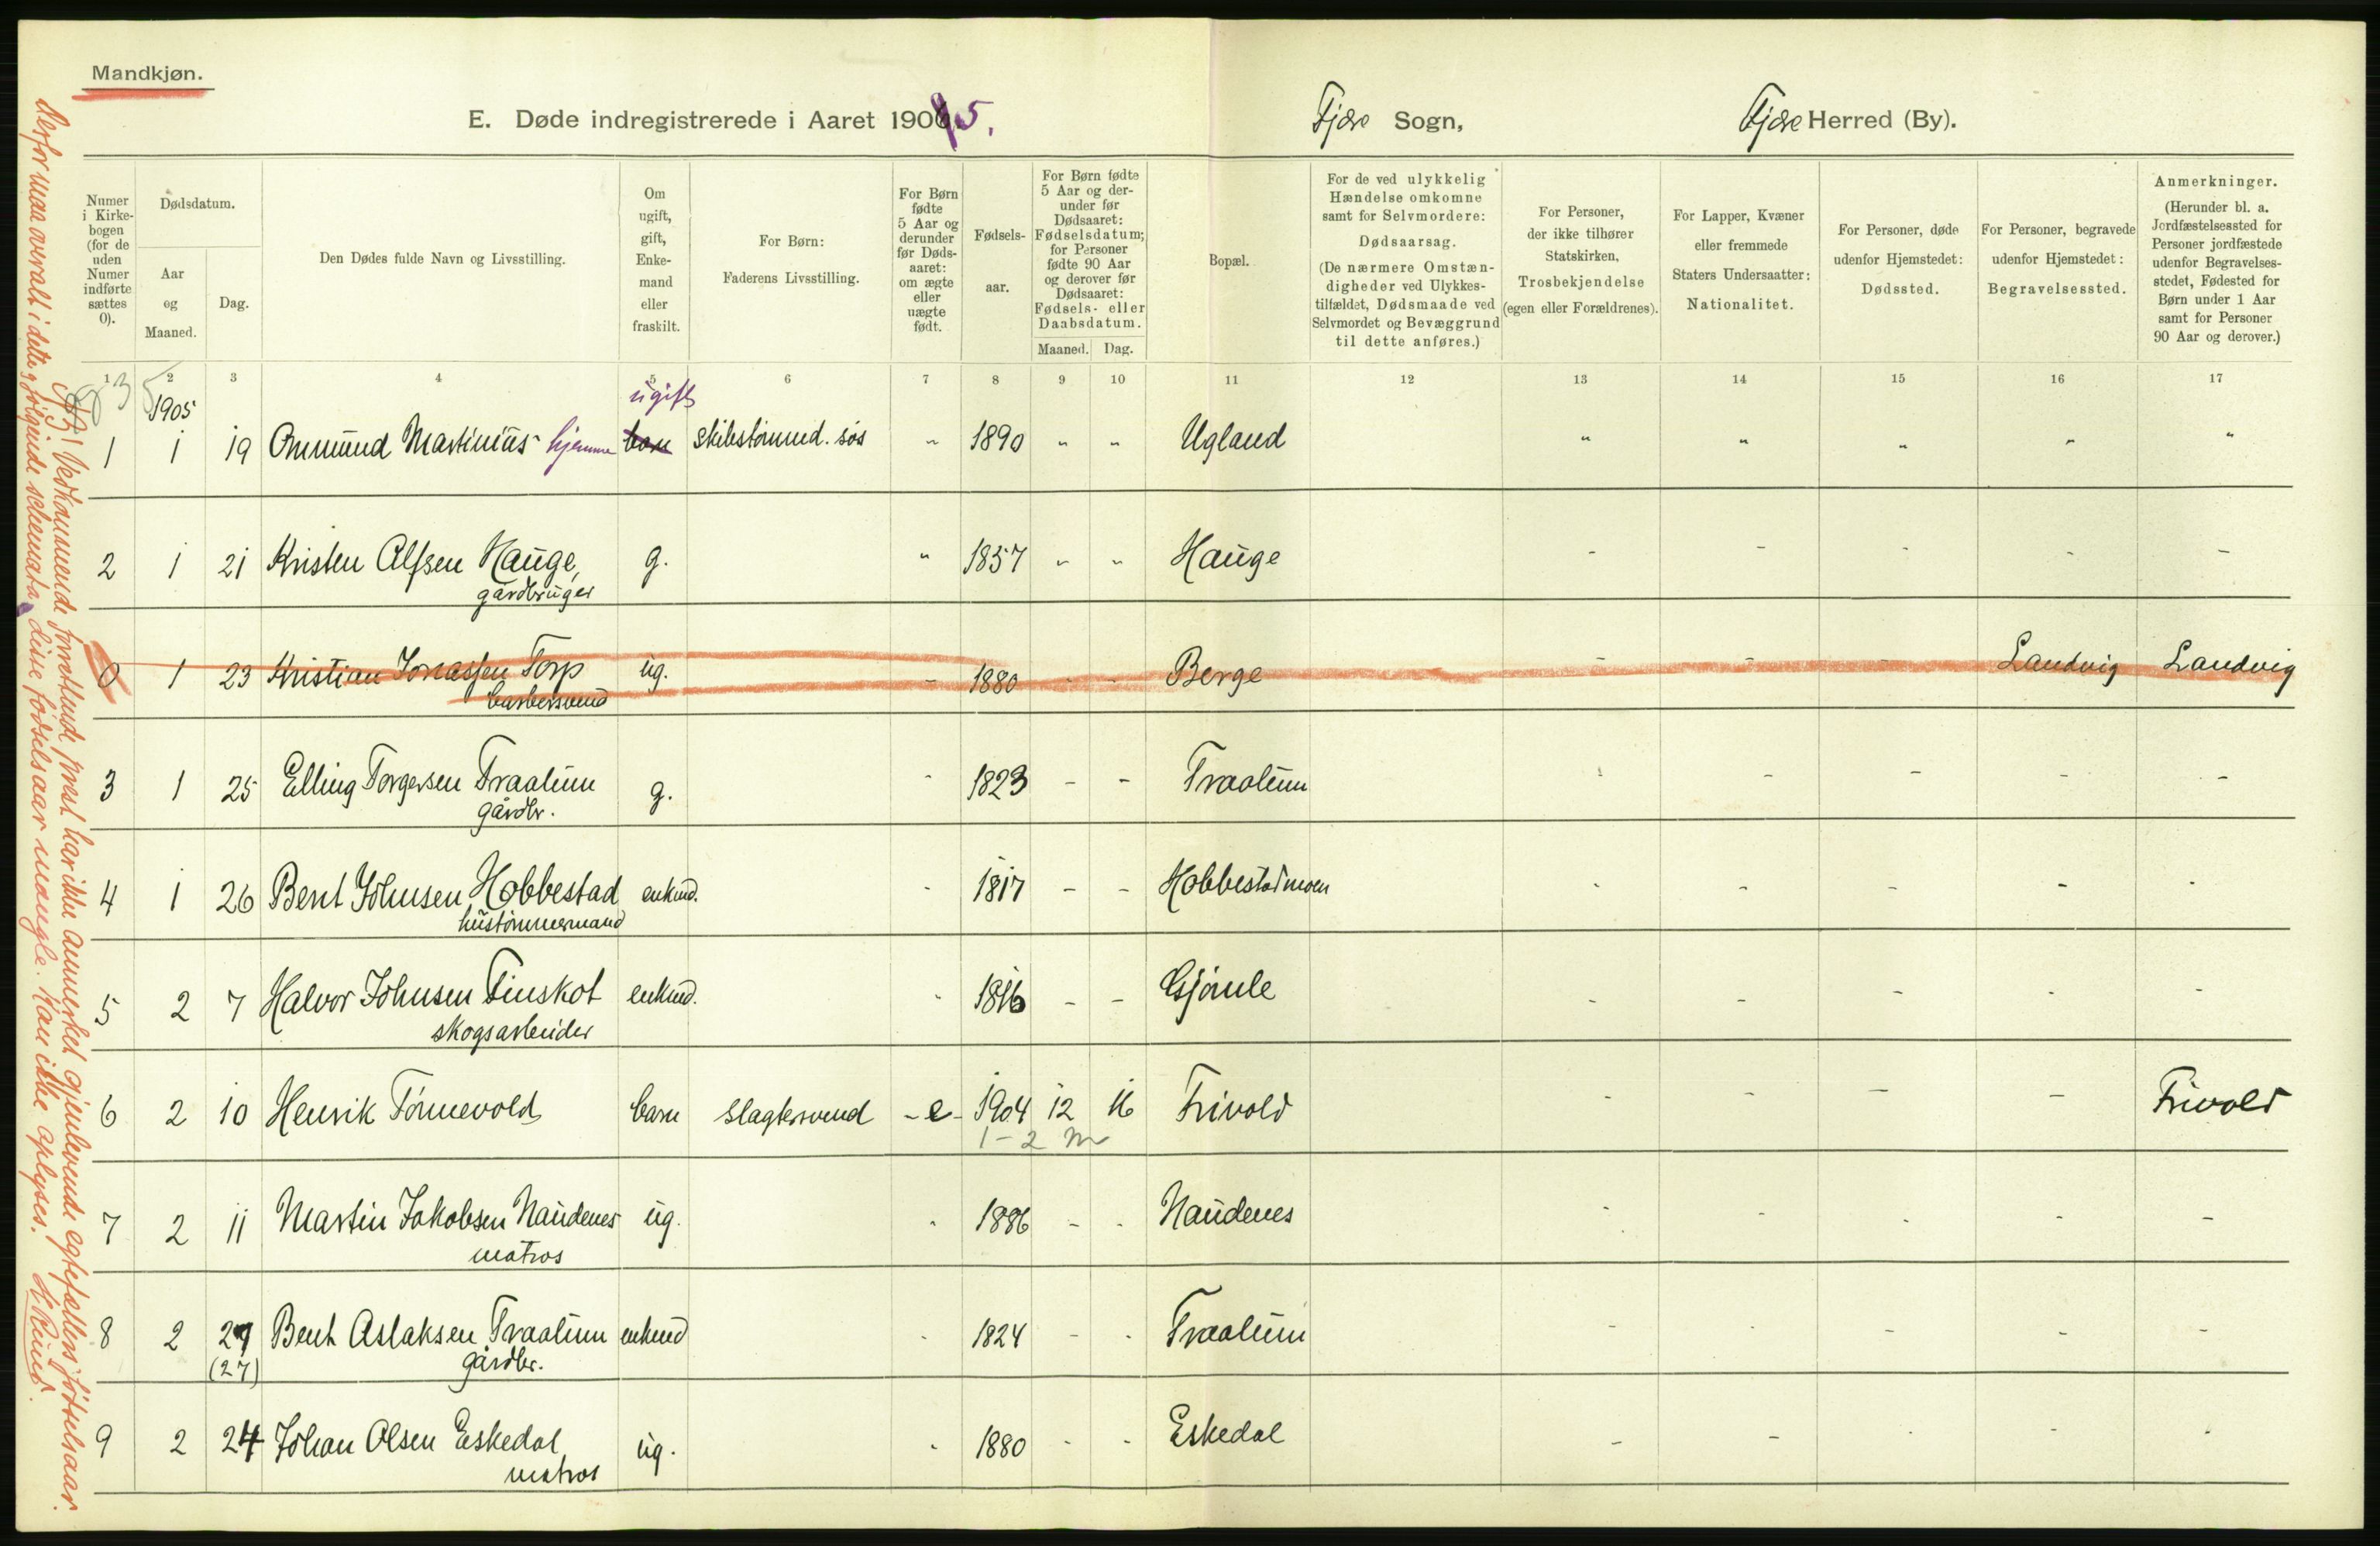 Mandkjøn.
E. Døde indregistrerede i Aaret 1905.
Fjære Sogn,
Fjære Herred (By).
Numer i Kirke-bogen (for de uden Numer indførte sættes 0).
Dødsdatum.
Aar og Maaned.
Dag.
Den Dødes fulde Navn og Livsstilling.
Om ugift, gift, Enke-mand eller fraskilt.
For Børn:
Faderens Livsstilling.
For Børn fødte 5 Aar og derunder før Døds-aaret: om ægte eller uægte født.
Fødsels-aar.
For Børn fødte 5 Aar og der-under før Dødsaaret: Fødselsdatum; for Personer fødte 90 Aar og derover før Dødsaaret: Fødsels- eller Daabsdatum.
Maaned. Dag.
Bopæl.
For de ved ulykkelig Hændelse omkomne samt for Selvmordere:
Dødsaarsag.
(De nærmere Omstæn-digheder ved Ulykkes-tilfældet, Dødsmaade ved Selvmordet og Bevæggrund til dette anføres.)
For Personer, der ikke tilhører Statskirken, Trosbekjendelse (egen eller Forældrenes).
For Lapper, Kvæner eller fremmede Staters Undersaatter: Nationalitet.
For Personer, døde udenfor Hjemstedet: Dødssted.
For Personer, begravede udenfor Hjemstedet: Begravelsessted.
Anmerkninger.
(Herunder bl. a. Jordfæstelsessted for Personer jordfæstede udenfor Begravelses-stedet, Fødested for Børn under 1 Aar samt for Personer 90 Aar og derover.)
1 2 3 4 5 6 7 8 9 10 11 12 13 14 15 16 17
1905 ugift
1 1 19 Ommund Martinius hjemme barn skibstømmd. søs " 1890 " " Ugland " " " " "
2 1 21 Kristen Alfsen Hauge, g. " 1857 " " Hauge - - - - -
gårdbruger
0 1 23 Kristian Jonassen Torp ug. - 1880 - - Berge - - - Landvig Landvig
barbersvend
3 1 25 Elling Torgersen Traalum g. - 1823 - - Traalum - - - - -
gårdbr.
4 1 26 Bent Johnsen Hobbestad enkmd. - 1817 - - Hobbestadmoen - - - - -
hustømmermand
5 2 7 Halvor Johnsen Finskot enkmd. - 1816 - - Gjømle - - - - -
skogsarbeider
6 2 10 Henrik Tønnevold barn slagtersvend - e - 1904 12 16 Frivold - - - - Frivold
1 - 2 m
7 2 11 Martin Jakobsen Naudenes ug. - 1886 - - Naudenes - - - - -
matros
8 2 27 Bent Aslaksen Traalum enkmd - 1824 - - Traalum - - - - -
(27) gårdbr.
9 2 24 Johan Olsen Eskedal ug. - 1880 - - Eskedal - - - - -
matros
NB! Vedkommende forrettende prest har ikke anmerket gjenlevende egtefælles fødselsaar.
Derfor maa overalt i dette og følgende schemata disse fødselsaar mangle. Kan ikke oplyses.